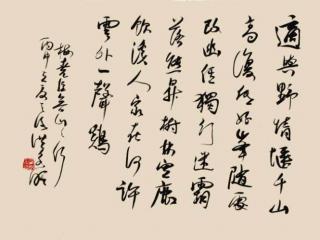 適與野情愜千山
高復低好峰隨處
改幽徑獨行迷霜
落熊昇樹林空鹿
飲溪人家在何許
雲外一聲鷄
梅堯臣魯山山行